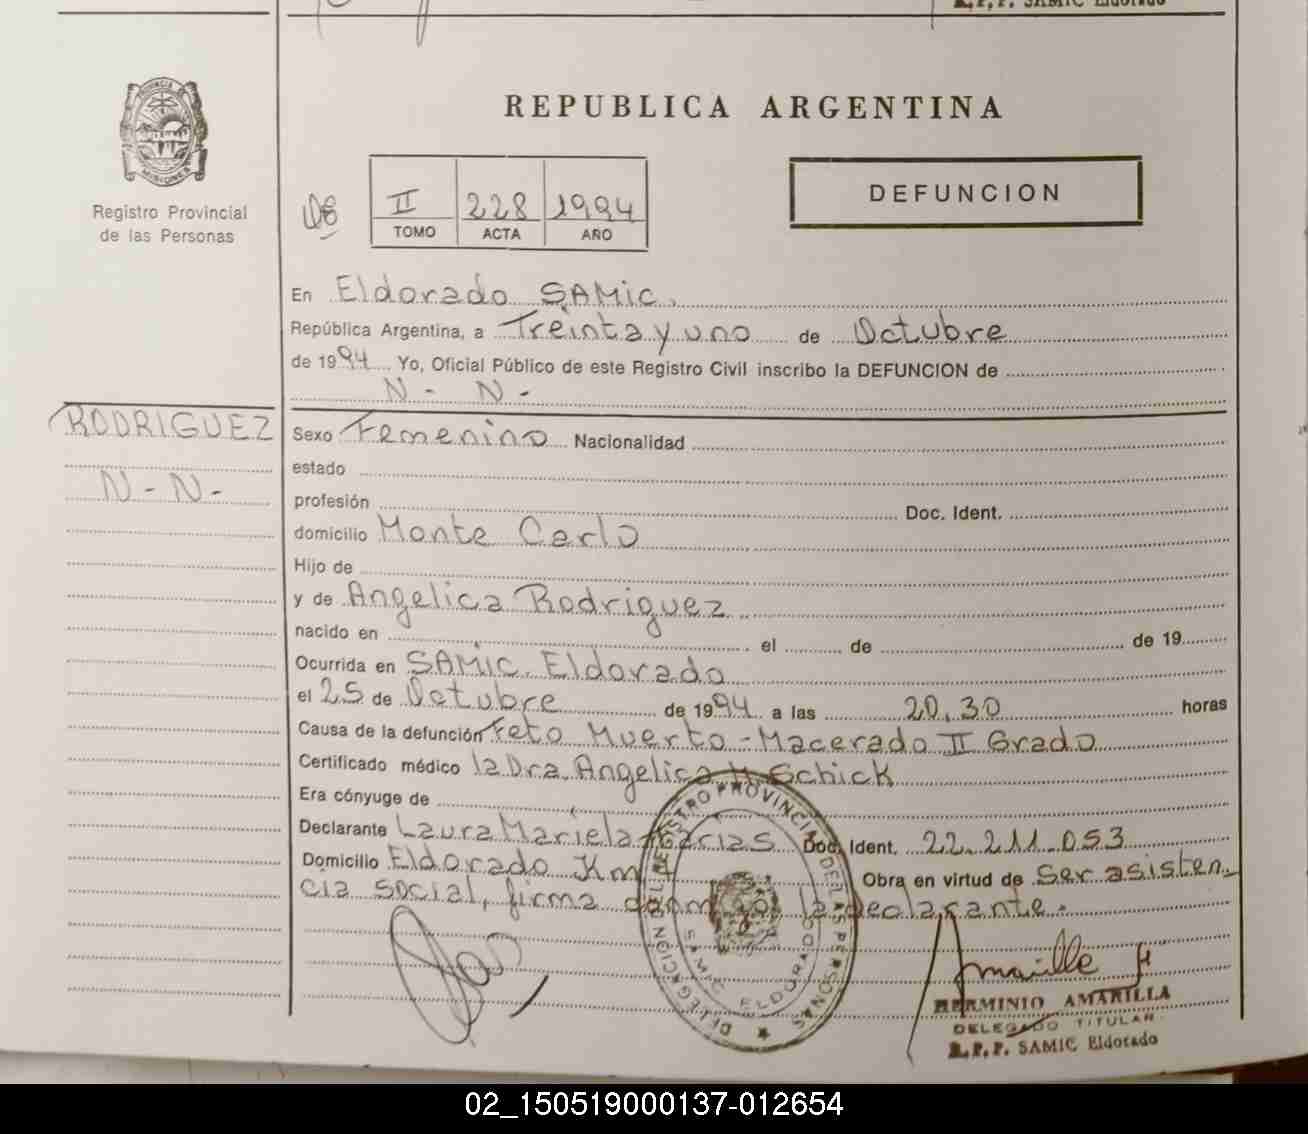 R.P.P. SAMIC Eldorado
PROVINCIA DE
MISIONES
Registro Provincial
de las Personas
REPUBLICA ARGENTINA
II 228 1994
TOMO ACTA AÑO
DEFUNCION
En Eldorado SAMic.
República Argentina, a Treinta y uno de Octubre
de 1994 Yo, Oficial Público de este Registro Civil inscribo la DEFUNCION de
N - N -
RODRIGUEZ
N - N -
Sexo Femenino Nacionalidad
estado
profesión Doc. Ident.
domicilio Monte Carlo
Hijo de
y de Angelica Rodriguez
nacido en el de de 19
Ocurrida en SAMic. Eldorado
el 25 de Octubre de 1994 a las 20,30 horas
Causa de la defunción Feto Muerto - Macerado II Grado
Certificado médico la Dra. Angelica M Schick
Era cónyuge de
Declarante Laura Mariela Doc. Ident. 22.211.053
Domicilio Eldorado Km 4 Obra en virtud de Ser asisten
cia social, firma la declarante.
DELEGACION REGISTRO PROVINCIAL DE LAS PERSONAS
SAMIC ELDORADO
HERMINIO AMARILLA
DELEGADO TITULAR
R.P.P. SAMIC Eldorado
02_150519000137-012654